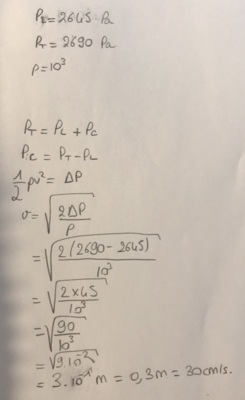 PL=2645 Pa
PT=2690 Pa
ρ=10³
PT = PL + PC
PC = PT-PL
1/2 ρv² = ΔP
v = √(2ΔP/ρ)
= √(2(2690-2645)/10³)
= √(2×45/10³)
= √(90/10³)
= √9.10⁻²
= 3.10⁻¹ m = 0,3m = 30cm/s.